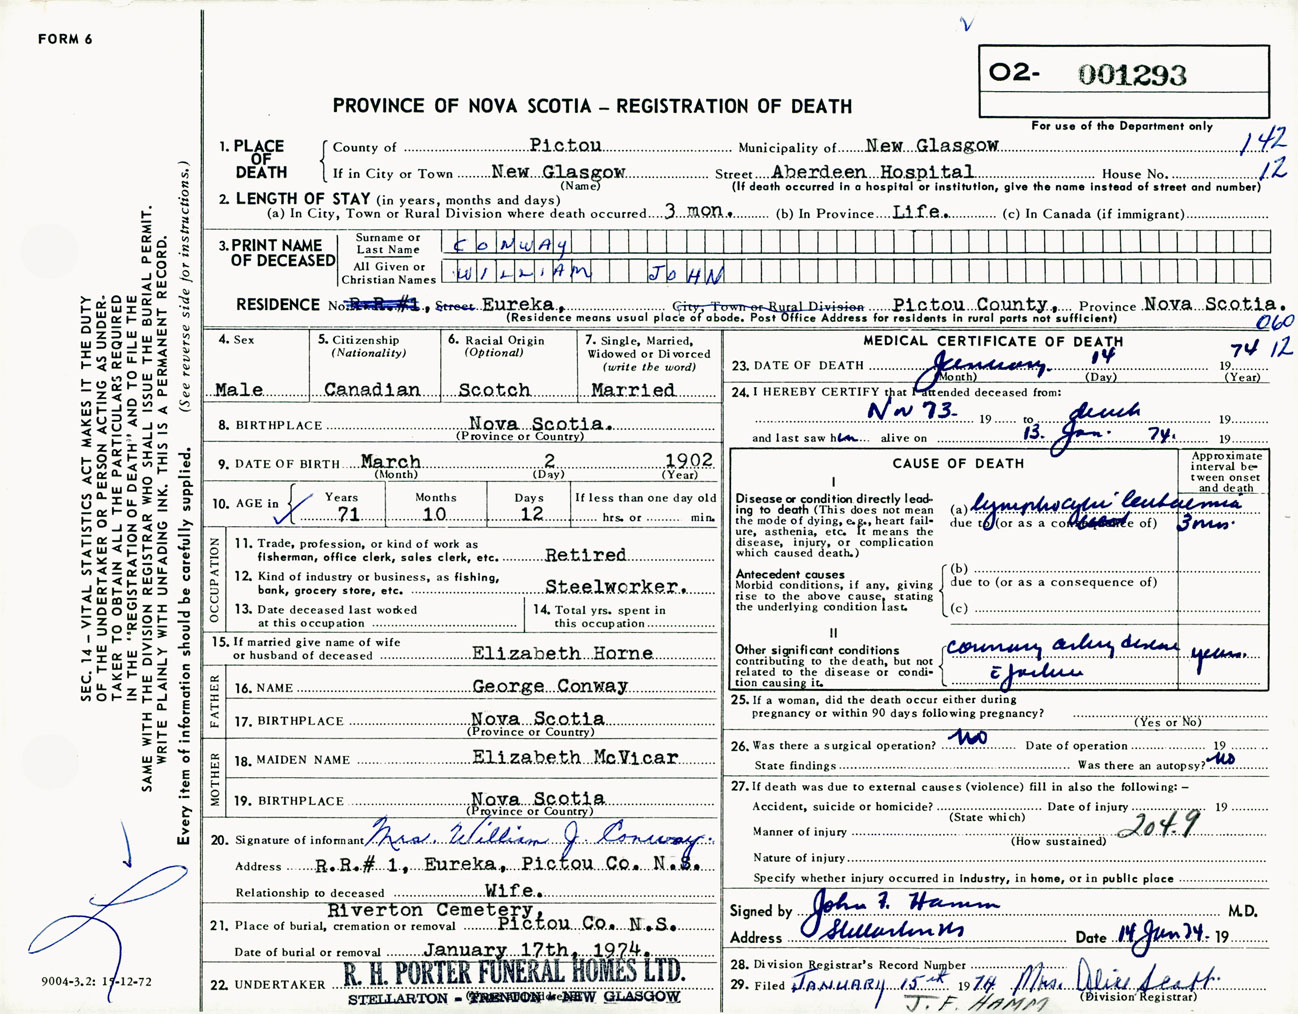 FORM 6
02- 001293
PROVINCE OF NOVA SCOTIA – REGISTRATION OF DEATH
For use of the Department only
1. PLACE OF DEATH
County of Pictou Municipality of New Glasgow 142
If in City or Town New Glasgow Street Aberdeen Hospital House No. 12
(Name) (If death occurred in a hospital or institution, give the name instead of street and number)
2. LENGTH OF STAY (in years, months and days)
(a) In City, Town or Rural Division where death occurred 3 mon. (b) In Province Life. (c) In Canada (if immigrant)
3. PRINT NAME OF DECEASED
Surname or Last Name CONWAY
All Given or Christian Names WILLIAM JOHN
RESIDENCE No. R.R.#1, Street Eureka, City, Town or Rural Division Pictou County, Province Nova Scotia.
(Residence means usual place of abode. Post Office Address for residents in rural parts not sufficient)
060
12
4. Sex
Male
5. Citizenship
(Nationality)
Canadian
6. Racial Origin
(Optional)
Scotch
7. Single, Married,
Widowed or Divorced
(write the word)
Married
8. BIRTHPLACE Nova Scotia.
(Province or Country)
9. DATE OF BIRTH March 2 1902
(Month) (Day) (Year)
10. AGE in
Years Months Days If less than one day old
71 10 12 hrs. or min.
OCCUPATION
11. Trade, profession, or kind of work as
fisherman, office clerk, sales clerk, etc. Retired
12. Kind of industry or business, as fishing,
bank, grocery store, etc. Steelworker.
13. Date deceased last worked
at this occupation
14. Total yrs. spent in
this occupation
15. If married give name of wife
or husband of deceased Elizabeth Horne
FATHER
16. NAME George Conway
17. BIRTHPLACE Nova Scotia
(Province or Country)
MOTHER
18. MAIDEN NAME Elizabeth McVicar
19. BIRTHPLACE Nova Scotia
(Province or Country)
20. Signature of informant Mrs. William J. Conway.
Address R.R.# 1, Eureka, Pictou Co. N.S.
Relationship to deceased Wife.
Riverton Cemetery,
21. Place of burial, cremation or removal Pictou Co. N.S.
Date of burial or removal January 17th, 1974.
22. UNDERTAKER R. H. PORTER FUNERAL HOMES LTD.
STELLARTON - TRENTON - NEW GLASGOW
MEDICAL CERTIFICATE OF DEATH
23. DATE OF DEATH January 14 19 74
(Month) (Day) (Year)
24. I HEREBY CERTIFY that I attended deceased from:
Nov 73. 19 to death
and last saw him alive on 13. Jan. 74. 19
CAUSE OF DEATH
Approximate
interval be-
tween onset
and death
I
Disease or condition directly lead-
ing to death (This does not mean
the mode of dying, e.g., heart fail-
ure, asthenia, etc. It means the
disease, injury, or complication
which caused death.)
(a) lymphocytic leukaemia
due to (or as a consequence of) 3 mos.
Antecedent causes
Morbid conditions, if any, giving
rise to the above cause, stating
the underlying condition last.
(b)
due to (or as a consequence of)
(c)
II
Other significant conditions
contributing to the death, but not
related to the disease or condi-
tion causing it.
coronary artery disease years.
c̄ failure
25. If a woman, did the death occur either during
pregnancy or within 90 days following pregnancy?
(Yes or No)
26. Was there a surgical operation? NO Date of operation 19
State findings Was there an autopsy? NO
27. If death was due to external causes (violence) fill in also the following: –
Accident, suicide or homicide? Date of injury 19
(State which)
Manner of injury 204.9
(How sustained)
Nature of injury
Specify whether injury occurred in industry, in home, or in public place
Signed by John F. Hamm M.D.
Address Stellarton NS Date 14 Jan 74. 19
28. Division Registrar's Record Number
29. Filed JANUARY 15th 1974 Mrs. Alice Scott.
(Division Registrar)
J. F. HAMM
SEC. 14 – VITAL STATISTICS ACT MAKES IT THE DUTY
OF THE UNDERTAKER OR PERSON ACTING AS UNDER-
TAKER TO OBTAIN ALL THE PARTICULARS REQUIRED
IN THE "REGISTRATION OF DEATH" AND TO FILE THE
SAME WITH THE DIVISION REGISTRAR WHO SHALL ISSUE THE BURIAL PERMIT.
WRITE PLAINLY WITH UNFADING INK. THIS IS A PERMANENT RECORD.
Every item of information should be carefully supplied. (See reverse side for instructions.)
9004-3.2: 15-12-72